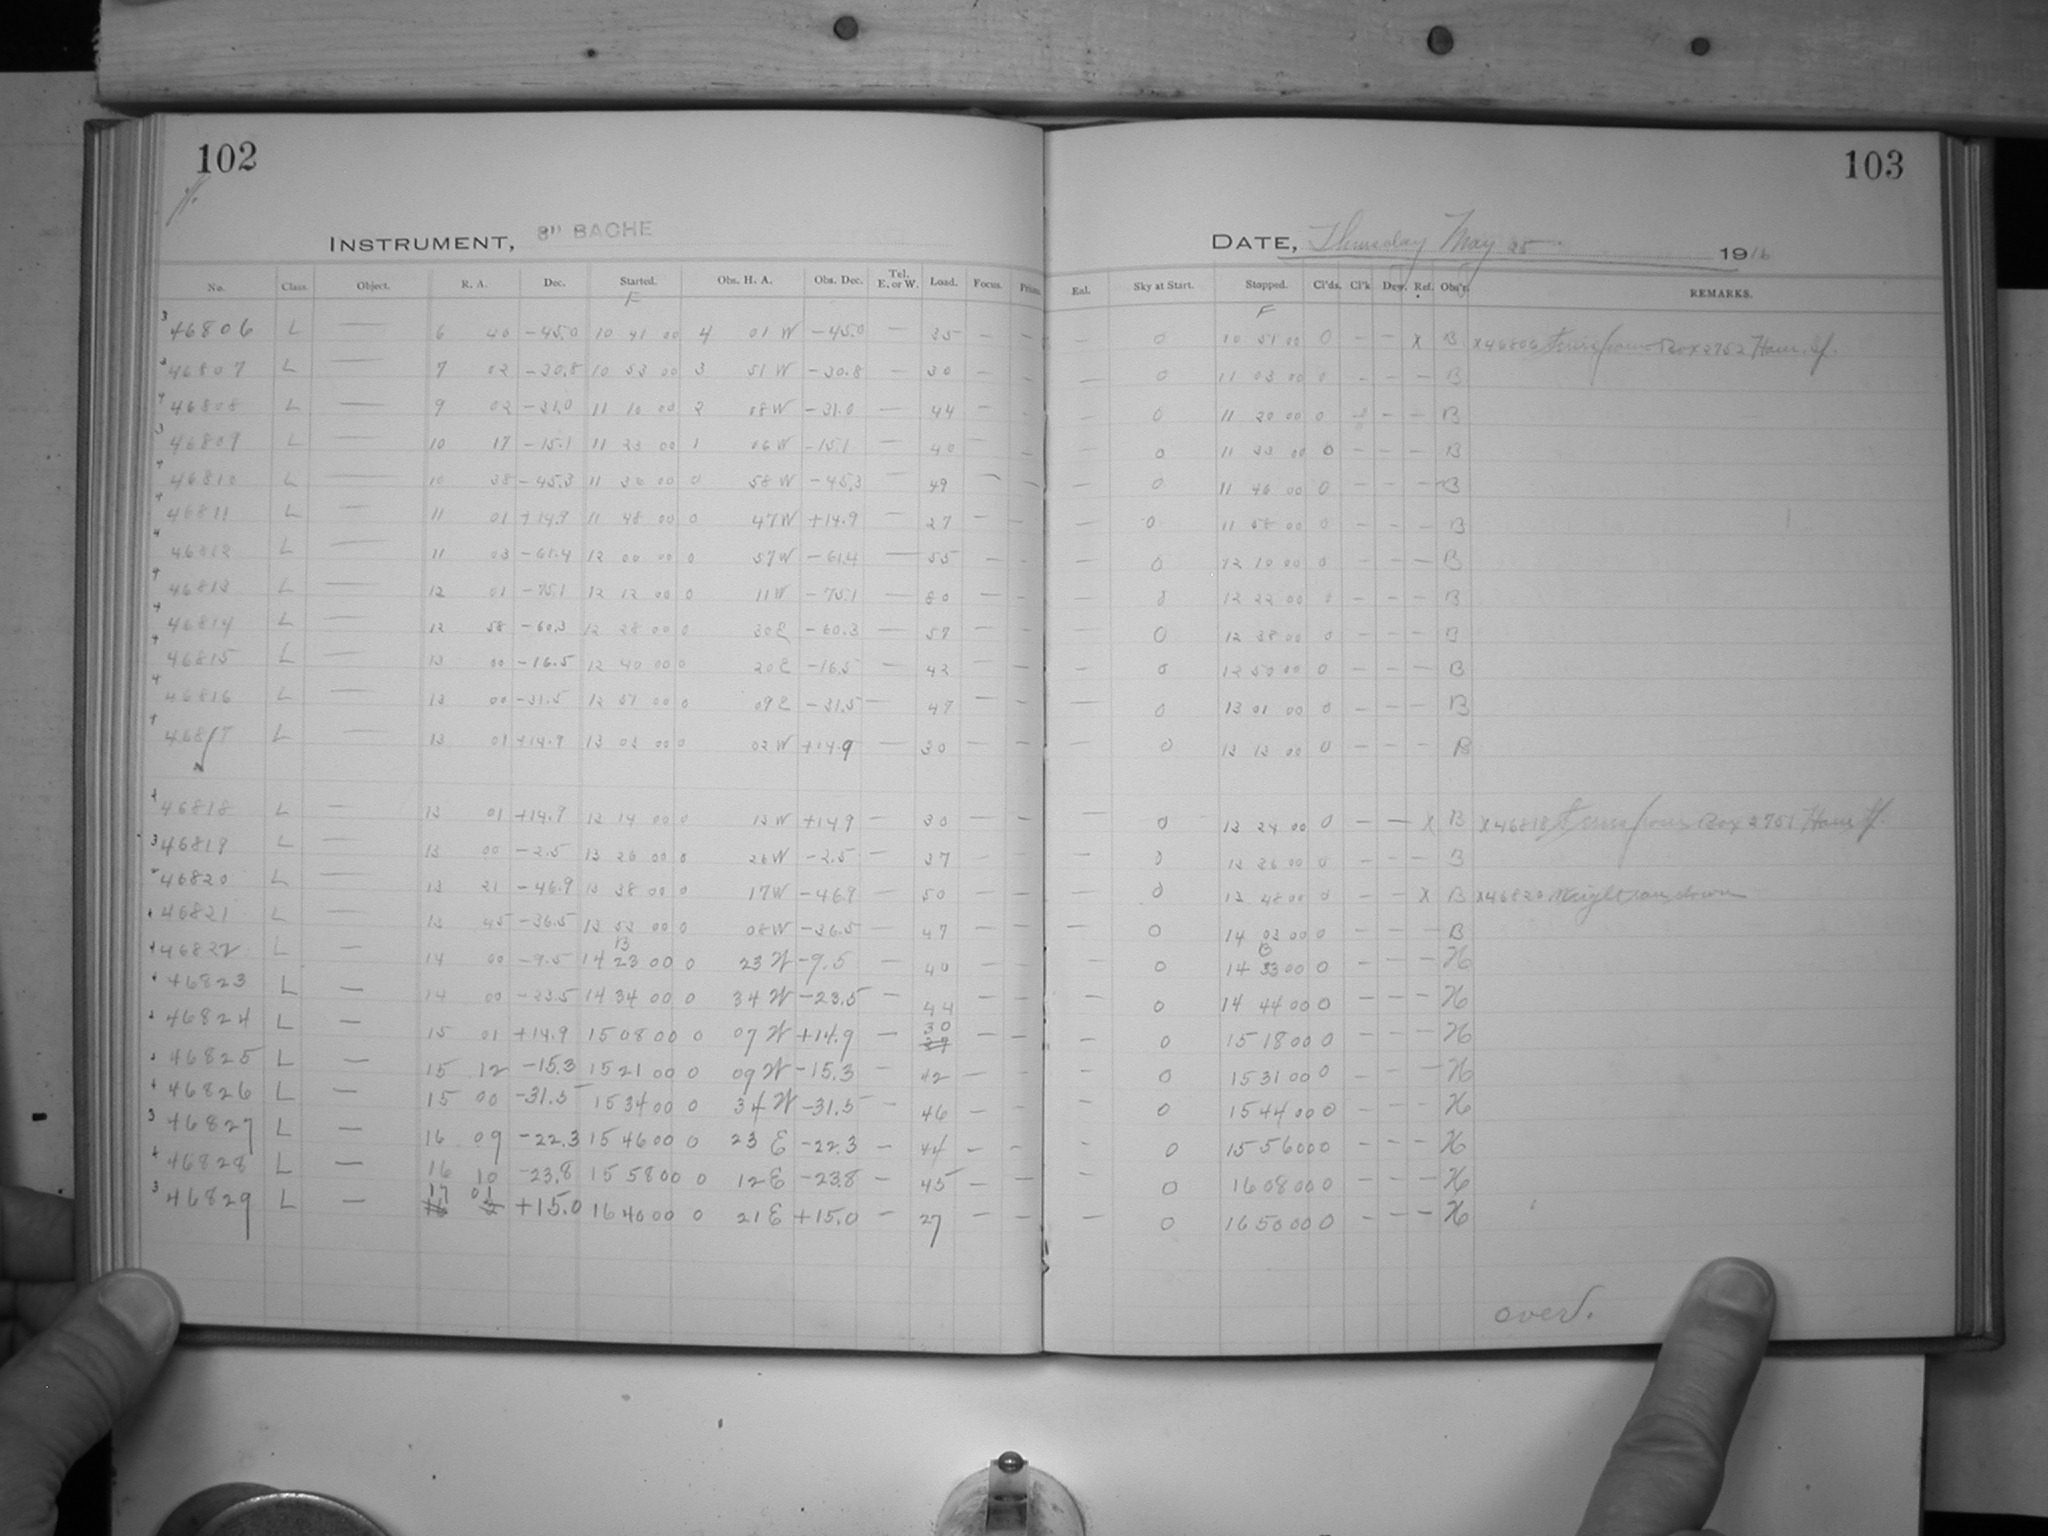 102
INSTRUMENT, 8" BACHE
No. Class. Object. R. A. Dec. Started. Obs. H. A. Obs. Dec. Tel. E. or W. Load. Focus. Prisms.
F
3 46806 L — 6 40 -45.0 10 41 00 4 01 W -45.0 — 35 — —
3 46807 L — 7 02 -30.8 10 53 00 3 51 W -30.8 — 30 — —
4 46808 L — 9 02 -31.0 11 10 00 2 08 W -31.0 — 44 — —
3 46809 L — 10 17 -15.1 11 23 00 1 06 W -15.1 — 40 — —
4 46810 L — 10 38 -45.3 11 36 00 0 58 W -45.3 — 49 — —
4 46811 L — 11 01 +14.9 11 48 00 0 47 W +14.9 — 27 — —
4 46812 L — 11 03 -61.4 12 00 00 0 57 W -61.4 — 55 — —
4 46813 L — 12 01 -75.1 12 12 00 0 11 W -75.1 — 60 — —
4 46814 L — 12 58 -60.3 12 28 00 0 30 E -60.3 — 57 — —
4 46815 L — 13 00 -16.5 12 40 00 0 20 E -16.5 — 42 — —
4 46816 L — 13 00 -31.5 12 51 00 0 09 E -31.5 — 47 — —
4 46817 L — 13 01 +14.9 13 03 00 0 02 W +14.9 — 30 — —
46818 L — 13 01 +14.9 13 14 00 0 13 W +14.9 — 30 — —
3 46819 L — 13 00 -2.5 13 26 00 0 26 W -2.5 — 37 — —
46820 L — 13 21 -46.9 13 38 00 0 17 W -46.9 — 50 — —
46821 L — 13 45 -36.5 13 53 00 0 08 W -36.5 — 47 — —
B
46822 L — 14 00 -9.5 14 23 00 0 23 W -9.5 — 40 — —
46823 L — 14 00 -23.5 14 34 00 0 34 W -23.5 — 44 — —
46824 L — 15 01 +14.9 15 08 00 0 07 W +14.9 — 30 — —
46825 L — 15 12 -15.3 15 21 00 0 09 W -15.3 — 42 — —
4 46826 L — 15 00 -31.5 15 34 00 0 34 W -31.5 — 46 — —
3 46827 L — 16 09 -22.3 15 46 00 0 23 E -22.3 — 44 — —
4 46828 L — 16 10 -23.8 15 58 00 0 12 E -23.8 — 45 — —
3 46829 L — 17 01 +15.0 16 40 00 0 21 E +15.0 — 27 — —
103
DATE, Thursday May 25 1916
Eal. Sky at Start. Stopped. Cl'ds. Cl'k Dew. Ref. Obs'r. REMARKS.
F
— 0 10 51 00 0 — — X B X46806 from Box 2752
— 0 11 03 00 0 — — — B
— 0 11 20 00 0 — — — B
— 0 11 33 00 0 — — — B
— 0 11 46 00 0 — — — B
— 0 11 58 00 0 — — — B
— 0 12 10 00 0 — — — B
— 0 12 22 00 0 — — — B
— 0 12 38 00 0 — — — B
— 0 12 50 00 0 — — — B
— 0 13 01 00 0 — — — B
— 0 13 13 00 0 — — — B
— 0 13 24 00 0 — — X B X46818 from Box 2751
— 0 13 36 00 0 — — — B
— 0 13 48 00 0 — — X B X46820 Weight ran down
— 0 14 03 00 0 — — — B
B
— 0 14 33 00 0 — — — H
— 0 14 44 00 0 — — — H
— 0 15 18 00 0 — — — H
— 0 15 31 00 0 — — — H
— 0 15 44 00 0 — — — H
— 0 15 56 00 0 — — — H
— 0 16 08 00 0 — — — H
— 0 16 50 00 0 — — — H
over.